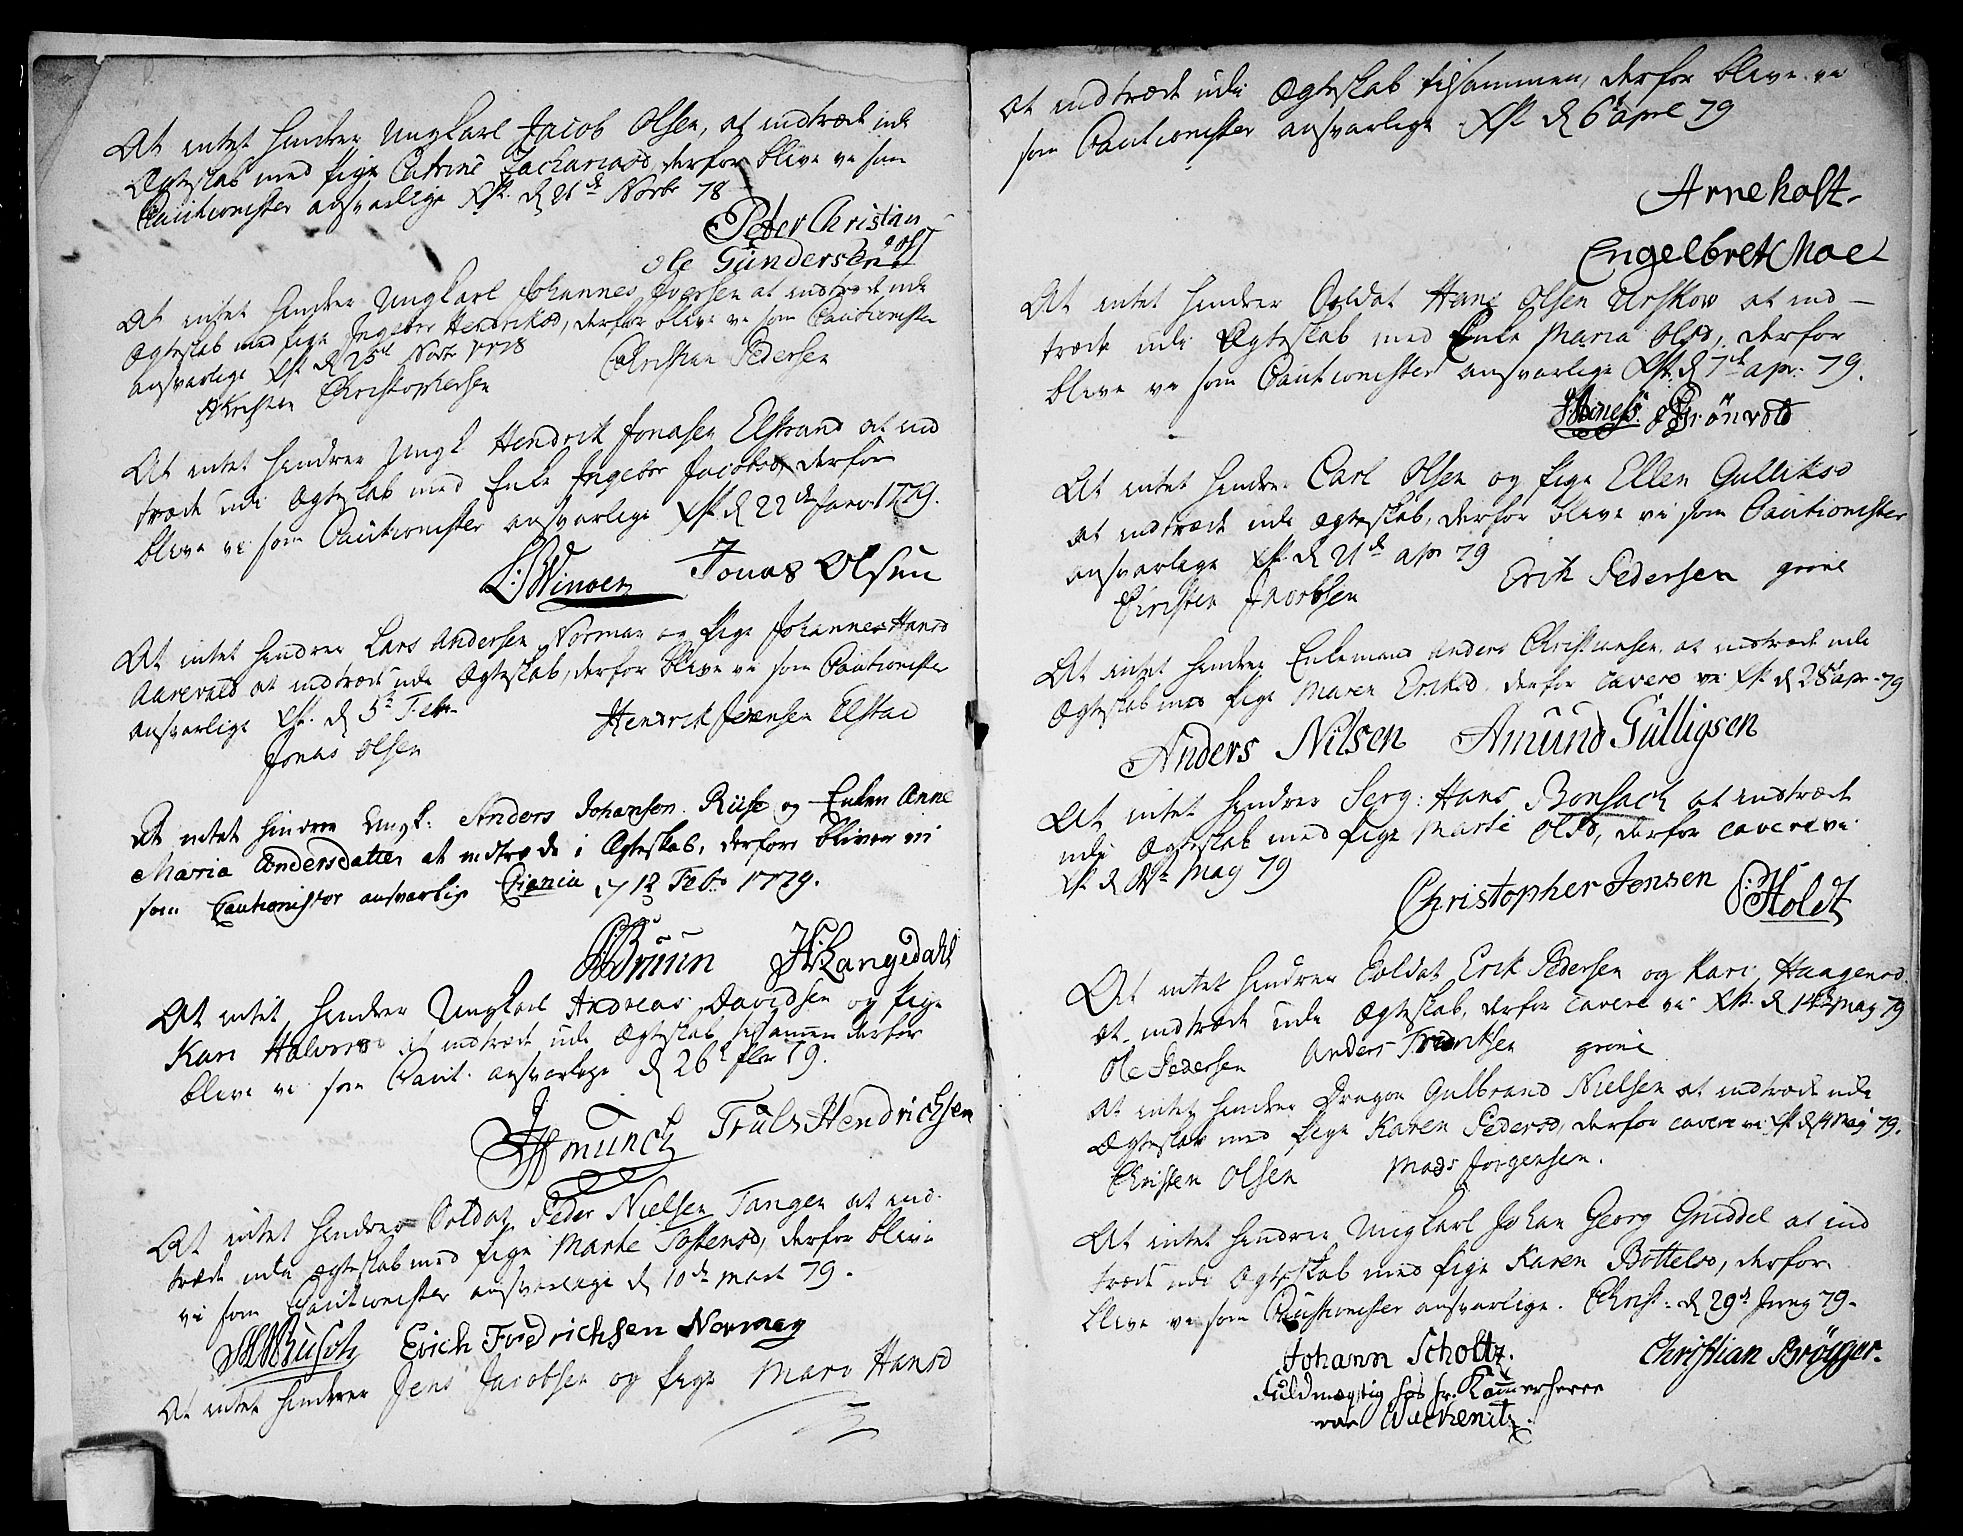 At intet hindrer Ungkarl Jacob Olsen, at indtræde udi
Ægteskab med Pige Catrine Zachariasd, derfor blive vi som
Cautionister ansvarlige Xst. d 21de Novbr 78
Peder Christian
Ole Gundersen
At intet hindrer Ungkarl Johannes Iversen at indtræde udi
Ægteskab med Pige Ingebor Hendriksd, derfor blive vi som Cautionister
ansvarlige Xst d 25de Novbr 1778
Christian Pedersen
Kristen Christophersen
At intet hindrer Ungk Hendrik Jonasen Elstrand at ind
træde udi Ægteskab med Enke Ingebor Jacobsd, derfor
blive vi som Cautionister ansvarlige Xst d 22de Janv. 1779.
L: Winder Jonas Olsen
At intet hindrer Lars Andersen Norman og Pige Johannes Hansd
Aarevald at indtræde udi Ægteskab, derfor blive vi som Cautionister
ansvarlige Xst. d 5te Febr.
Hendrik Jensen Elstad
Jonas Olsen
At intet hindrer Ungk: Anders Johansen Riise og Enken Anne
Maria Andersdatter at indtræde i Ægteskab, derfore bliver vi
som Cautionister ansvarlig Christiania 12 Febr 1779.
Bruun H: Langedahl
At intet hindrer Ungkarl Andreas Davidsen og Pige
Kari Halvorsd at indtræde udi Ægteskab tilsamen derfor
blive vi som Caut. ansvarlige d 26de Febr 79.
Munch Truls Hendrichsen
At intet hindrer Soldat Peder Nielsen Tangen at ind
træde udi Ægteskab med Pige Marte Tostensd, derfor blive
vi som Cautionister ansvarlige d 10de Mart 79.
Busch Erich Fredrichsen Nermay
At intet hindrer Jens Jacobsen og Pige Mari Hansd
at indtræde udi Ægteskab tilsammen, derfor blive vi
som Cautionister ansvarlige Xst d 6te apr 79
Arne holt
Engelbret Moe
At intet hindrer Soldat Hans Olsen Urskov at ind
træde udi Ægteskab med Enke Maria Olsd, derfor
blive vi som Cautionister ansvarlige Xst. d 7de apr. 79.
Grönvold
At intet hindrer Carl Olsen og Pige Ellen Gulliksd
at indtræde udi Ægteskab, derfor blive vi som Cautionister
ansvarlige Xst. d 21de apr 79
Erik Pedersen grine
Christen Jacobsen
At intet hindrer Enkemand Anders Christiansen at indtræde udi
Ægteskab med Pige Maren Eriksd. derfor cavere vi Xst. d 28de apr. 79
Anders Nilsen Amund Gulligsen
At intet hindrer Serg: Hans Bonsach at indtræde
udi Ægteskab med Pige Marte Olsd, derfor cavere vi
Xst d May 79
Christopher Jensen Holdt
At intet hindrer Soldat Erik Pedersen og Kari Haagensd
at indtræde udi Ægteskab, derfor cavere vi Xst. d 14de May 79
Ole Pedersen Anders Frantsen grine
At intet hindrer Dragon Gulbrand Nielsen at indtræde udi
Ægteskab med Pige Karen Pedersd, derfor cavere vi Xst d 14 May 79.
Christen Olsen Mads Jörgensen.
At intet hindrer Ungkarl Johan Georg Gruddel at ind
træde udi Ægteskab med Pige Karen Bottelsd, derfor
blive vi som Cautionister ansvarlige. Christ: d 29de Juny 79.
Johann Scholtz. Christian Brögger.
Fuldmægtig hos hr. Kammerherre
von Wackenitz.